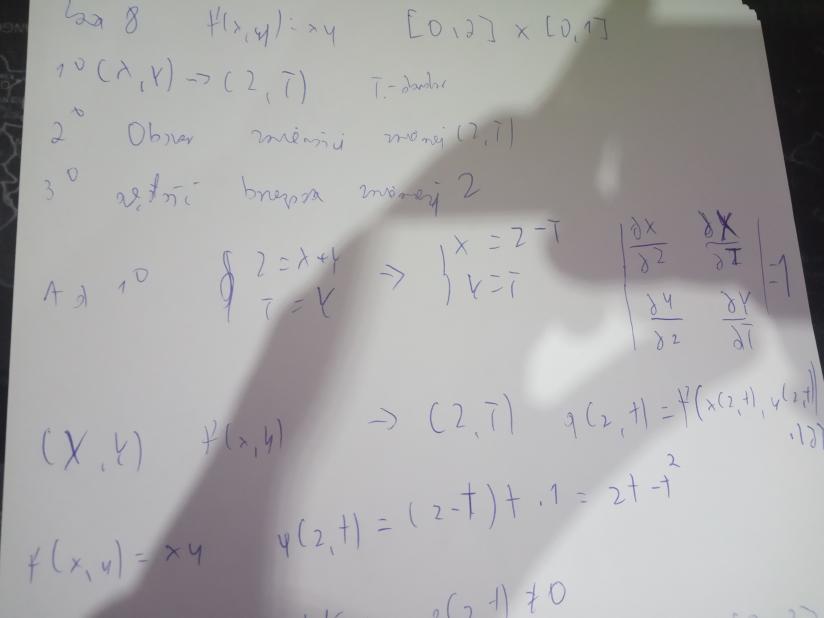 Zad 8 f(x,y) = xy [0,2] × [0,1]
1° (X,Y) → (Z,T) T.-
2° Obszar zmienności zmiennej (Z,T)
3° zmiennej Z
Ad 1° { Z = X+Y T = Y ⇒ { X = Z-T Y = T | ∂X/∂Z ∂X/∂T ∂Y/∂Z ∂Y/∂T | = 1
(X,Y) f(x,y) → (Z,T) g(z,t) = f(x(z,t), y(z,t)) · |J|
f(x,y) = xy g(z,t) = (z-t)t · 1 = zt - t²
g(z,t) ≠ 0